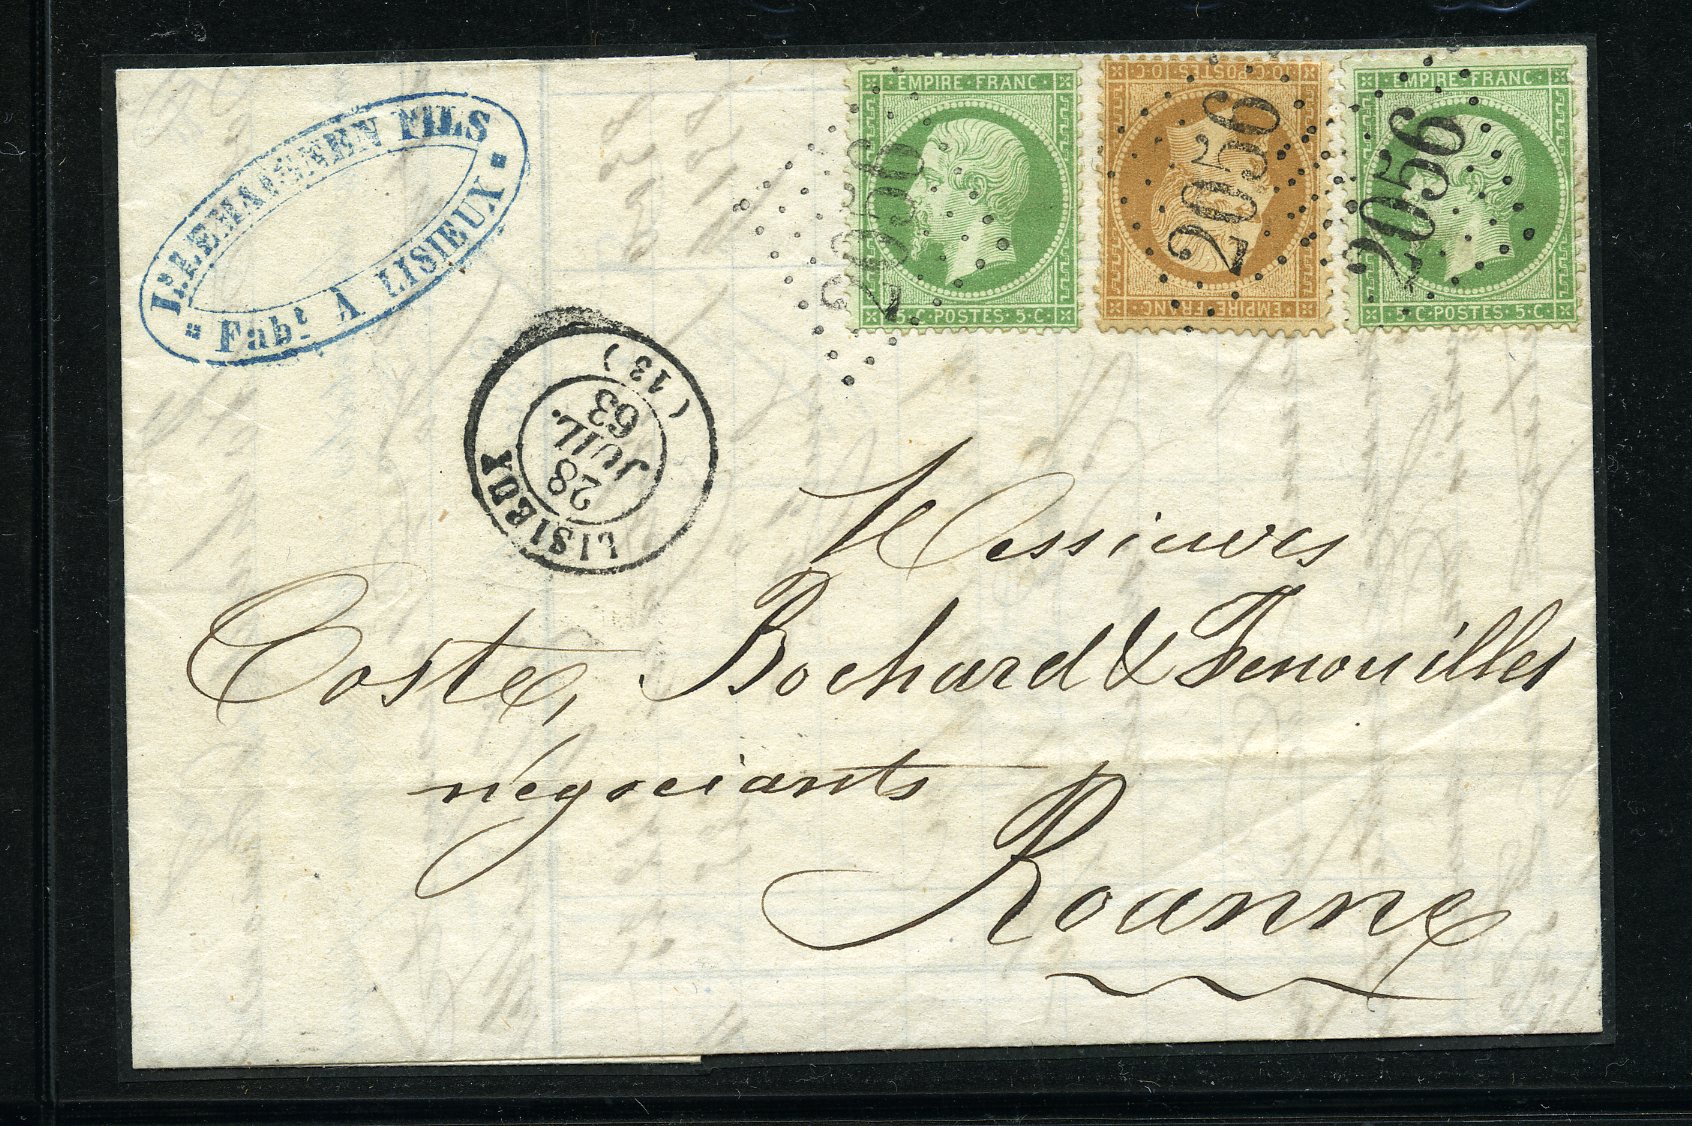 FILS
Fabt. A LISIEUX
EMPIRE·FRANC
5·C·POSTES·5·C
2056
10·C·POSTES·10·C
EMPIRE·FRANC
2056
EMPIRE·FRANC
5·C·POSTES·5·C
2056
LISIEUX
28
JUIL.
63
(13)
Messieurs
Coste, Bochard & Fenouillet
négociants
Roanne